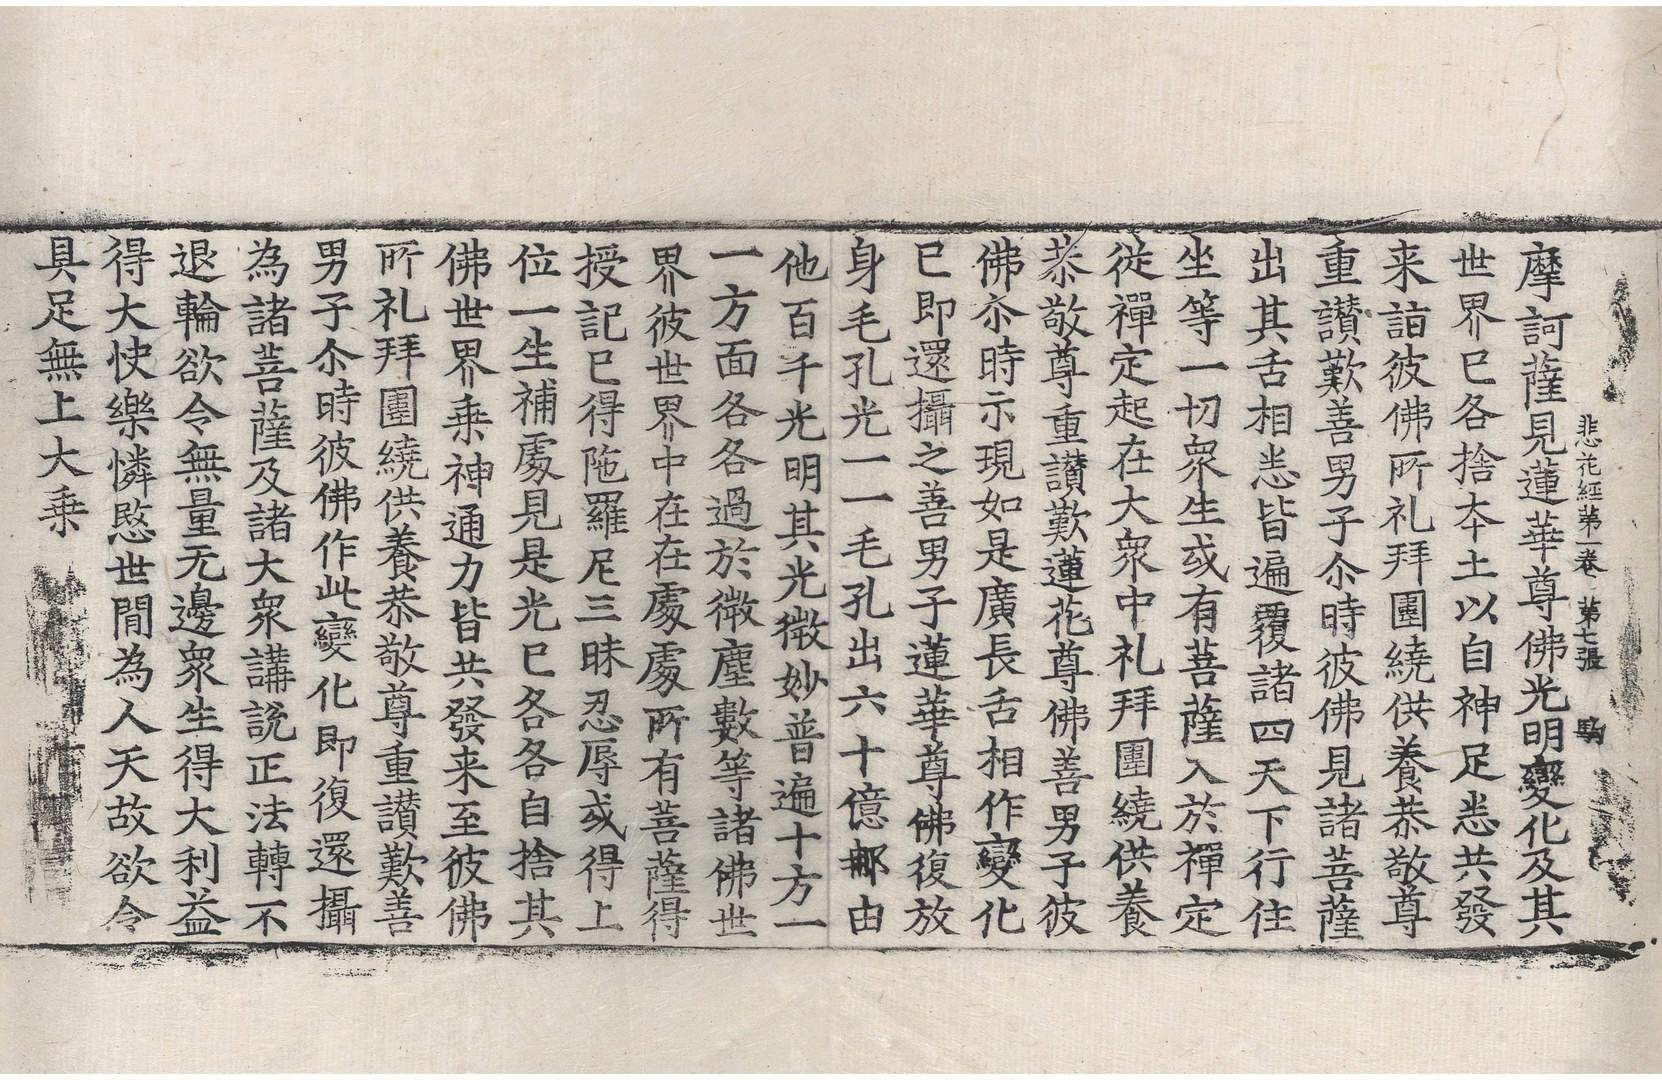 悲花經第一卷 第七張 駒
摩訶薩見蓮華尊佛光明變化及其
世界已各捨本土以自神足悉共發
来詣彼佛所礼拜圍繞供養恭敬尊
重讃歎善男子尒時彼佛見諸菩薩
出其舌相悉皆遍覆諸四天下行住
坐等一切衆生或有菩薩入於禪定
從禪定起在大衆中礼拜圍繞供養
恭敬尊重讃歎蓮花尊佛善男子彼
佛尒時示現如是廣長舌相作變化
已即還攝之善男子蓮華尊佛復放
身毛孔光一一毛孔出六十億那由
他百千光明其光微妙普遍十方一
一方面各各過於微塵數等諸佛世
界彼世界中在在處處所有菩薩得
授記已得陁羅尼三昧忍辱或得上
位一生補處見是光已各各自捨其
佛世界乗神通力皆共發来至彼佛
所礼拜圍繞供養恭敬尊重讃歎善
男子尒時彼佛作此變化即復還攝
為諸菩薩及諸大衆講說正法轉不
退輪欲令無量无邊衆生得大利益
得大快樂憐愍世間為人天故欲令
具足無上大乗